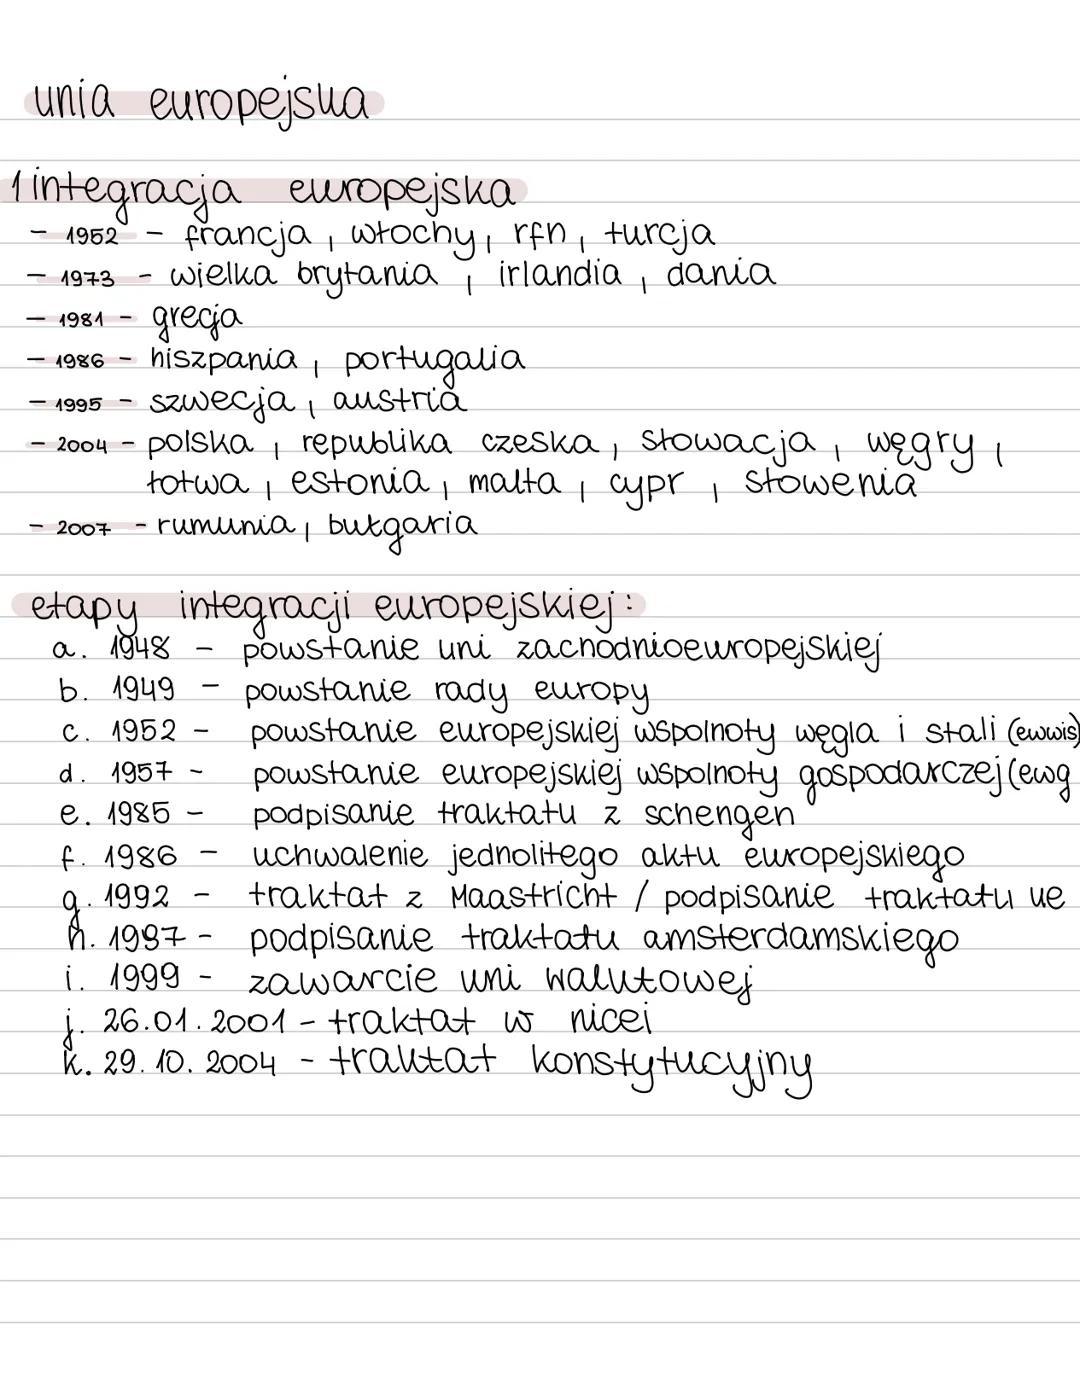 unia europejska
1 integracja europejska
- 1952 - francja, włochy, rfn, turcja
- 1973 - wielka brytania, irlandia, dania
- 1981 - grecja
- 1986 - hiszpania, portugalia
- 1995 - szwecja, austria
- 2004 - polska, republika czeska, słowacja, węgry,
łotwa, estonia, malta, cypr, słowenia
- 2007 - rumunia, bułgaria
etapy integracji europejskiej:
a. 1948 - powstanie uni zachodnioeuropejskiej
b. 1949 - powstanie rady europy
c. 1952 - powstanie europejskiej wspolnoty węgla i stali (ewwis)
d. 1957 - powstanie europejskiej wspolnoty gospodarczej (ewg
e. 1985 - podpisanie traktatu z schengen
f. 1986 - uchwalenie jednolitego aktu europejskiego
g. 1992 - traktat z Maastricht / podpisanie traktatu ue
h. 1997 - podpisanie traktatu amsterdamskiego
i. 1999 - zawarcie uni walutowej
j. 26.01.2001 - traktat w nicei
k. 29.10.2004 - traktat konstytucyjny